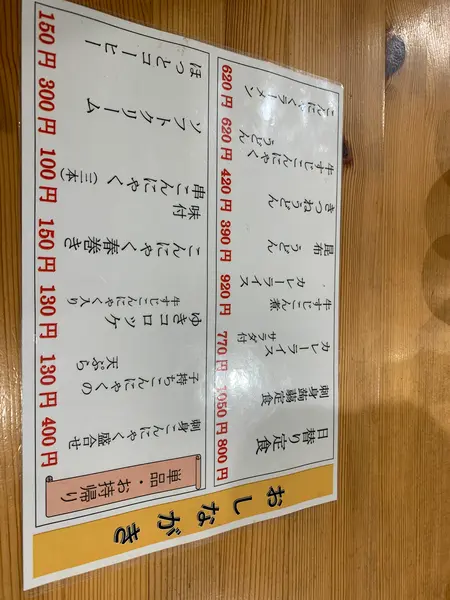 おしながき
日替り定食
800円
刺身蒟蒻定食
1050円
カレーライス
サラダ付
770円
牛すじこん煮
カレーライス
920円
昆布うどん
390円
きつねうどん
420円
牛すじこんにゃく
うどん
620円
こんにゃくラーメン
620円
単品・お持帰り
刺身こんにゃく
盛合せ
400円
子持ちこんにゃくの
天ぷら
130円
牛すじこんにゃく入り
ゆきコロッケ
130円
こんにゃく春巻き
150円
味付
串こんにゃく(三本)
100円
ソフトクリーム
300円
ほっとコーヒー
150円